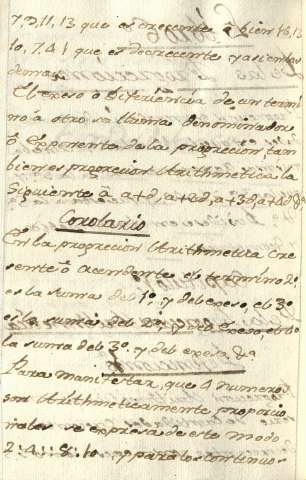 7, 9, 11, 13 que es creciente ó bien 16, 13
10, 7, 4, 1 que es decreciente y asi en las
demas.
El exceso ó diferiencia de un termi
no a otro se llama denominador
ó Exponente de la progrecion, tam
bien es progrecion Arithmetica la
siguiente a. a+d, a+2d, a+3d, a+4d &ª
Corolario
En la progrecion Arithmetica Cre
sente ó Acendente el termino 2º
es la suma del 1º y del exeso, el 3º
es la suma del 2º y del Exeso, el 4º
la suma del 3º y del exeso, &ª
Para manifestar, que 4 numeros
son Arithmeticamente proporcio
nales se expresa de este modo
2 : 4 : : 8 : 10 y para los continuos